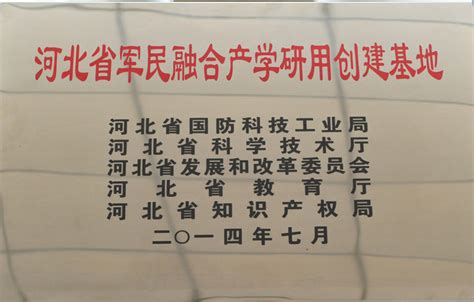 河北省军民融合产学研用创建基地
河北省国防科技工业局
河北省科学技术厅
河北省发展和改革委员会
河北省教育厅
河北省知识产权局
二〇一四年七月